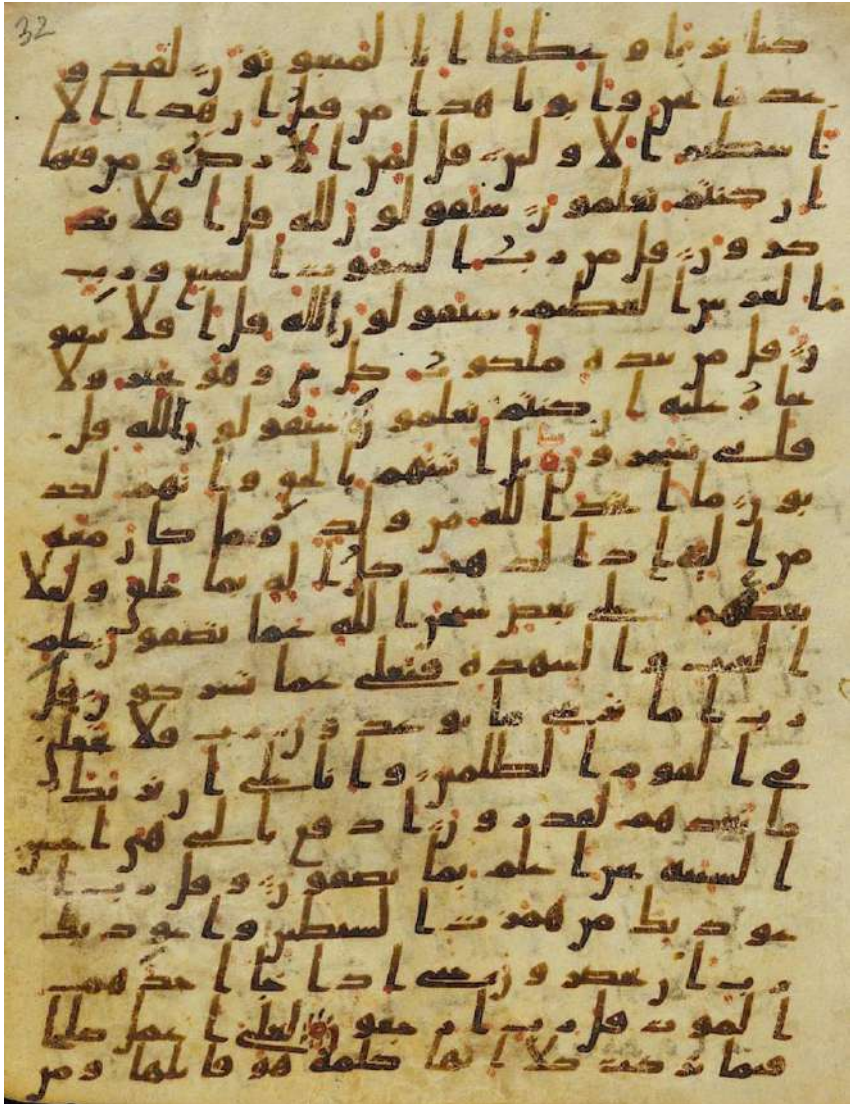 32
كنا ترابا وعظما انا لمبعوثون لقد و
عدنا نحن واباونا هذا من قبل ان هذا الا
اسطير الاولين قل لمن الارض ومن فيها
ان كنتم تعلمون سيقولون لله قل افلا تذ
كرون قل من رب السموت السبع ورب
العرش العظيم سيقولون الله قل افلا تتقو
ن قل من بيده ملكوت كل شي وهو يجير ولا
يجار عليه ان كنتم تعلمون سيقولون الله قل
فانى تسحرون بل اتينهم بالحق وانهم لكذ
بون ما اتخذ الله من ولد وما كان معه
من اله اذا لذهب كل اله بما خلق ولعلا
بعضهم على بعض سبحن الله عما يصفون علم
الغيب والشهدة فتعلى عما يشركون قل
رب اما تريني ما يوعدون رب فلا تجعلني
في القوم الظلمين وانا على ان نريك
ما نعدهم لقدرون ادفع بالتي هي احسن
السيئة نحن اعلم بما يصفون وقل رب ا
عوذ بك من همزت الشيطين واعوذ بك
رب ان يحضرون حتى اذا جا احدهم
الموت قل رب ارجعون لعلي اعمل صلحا
فيما تركت كلا انها كلمة هو قايلها ومن